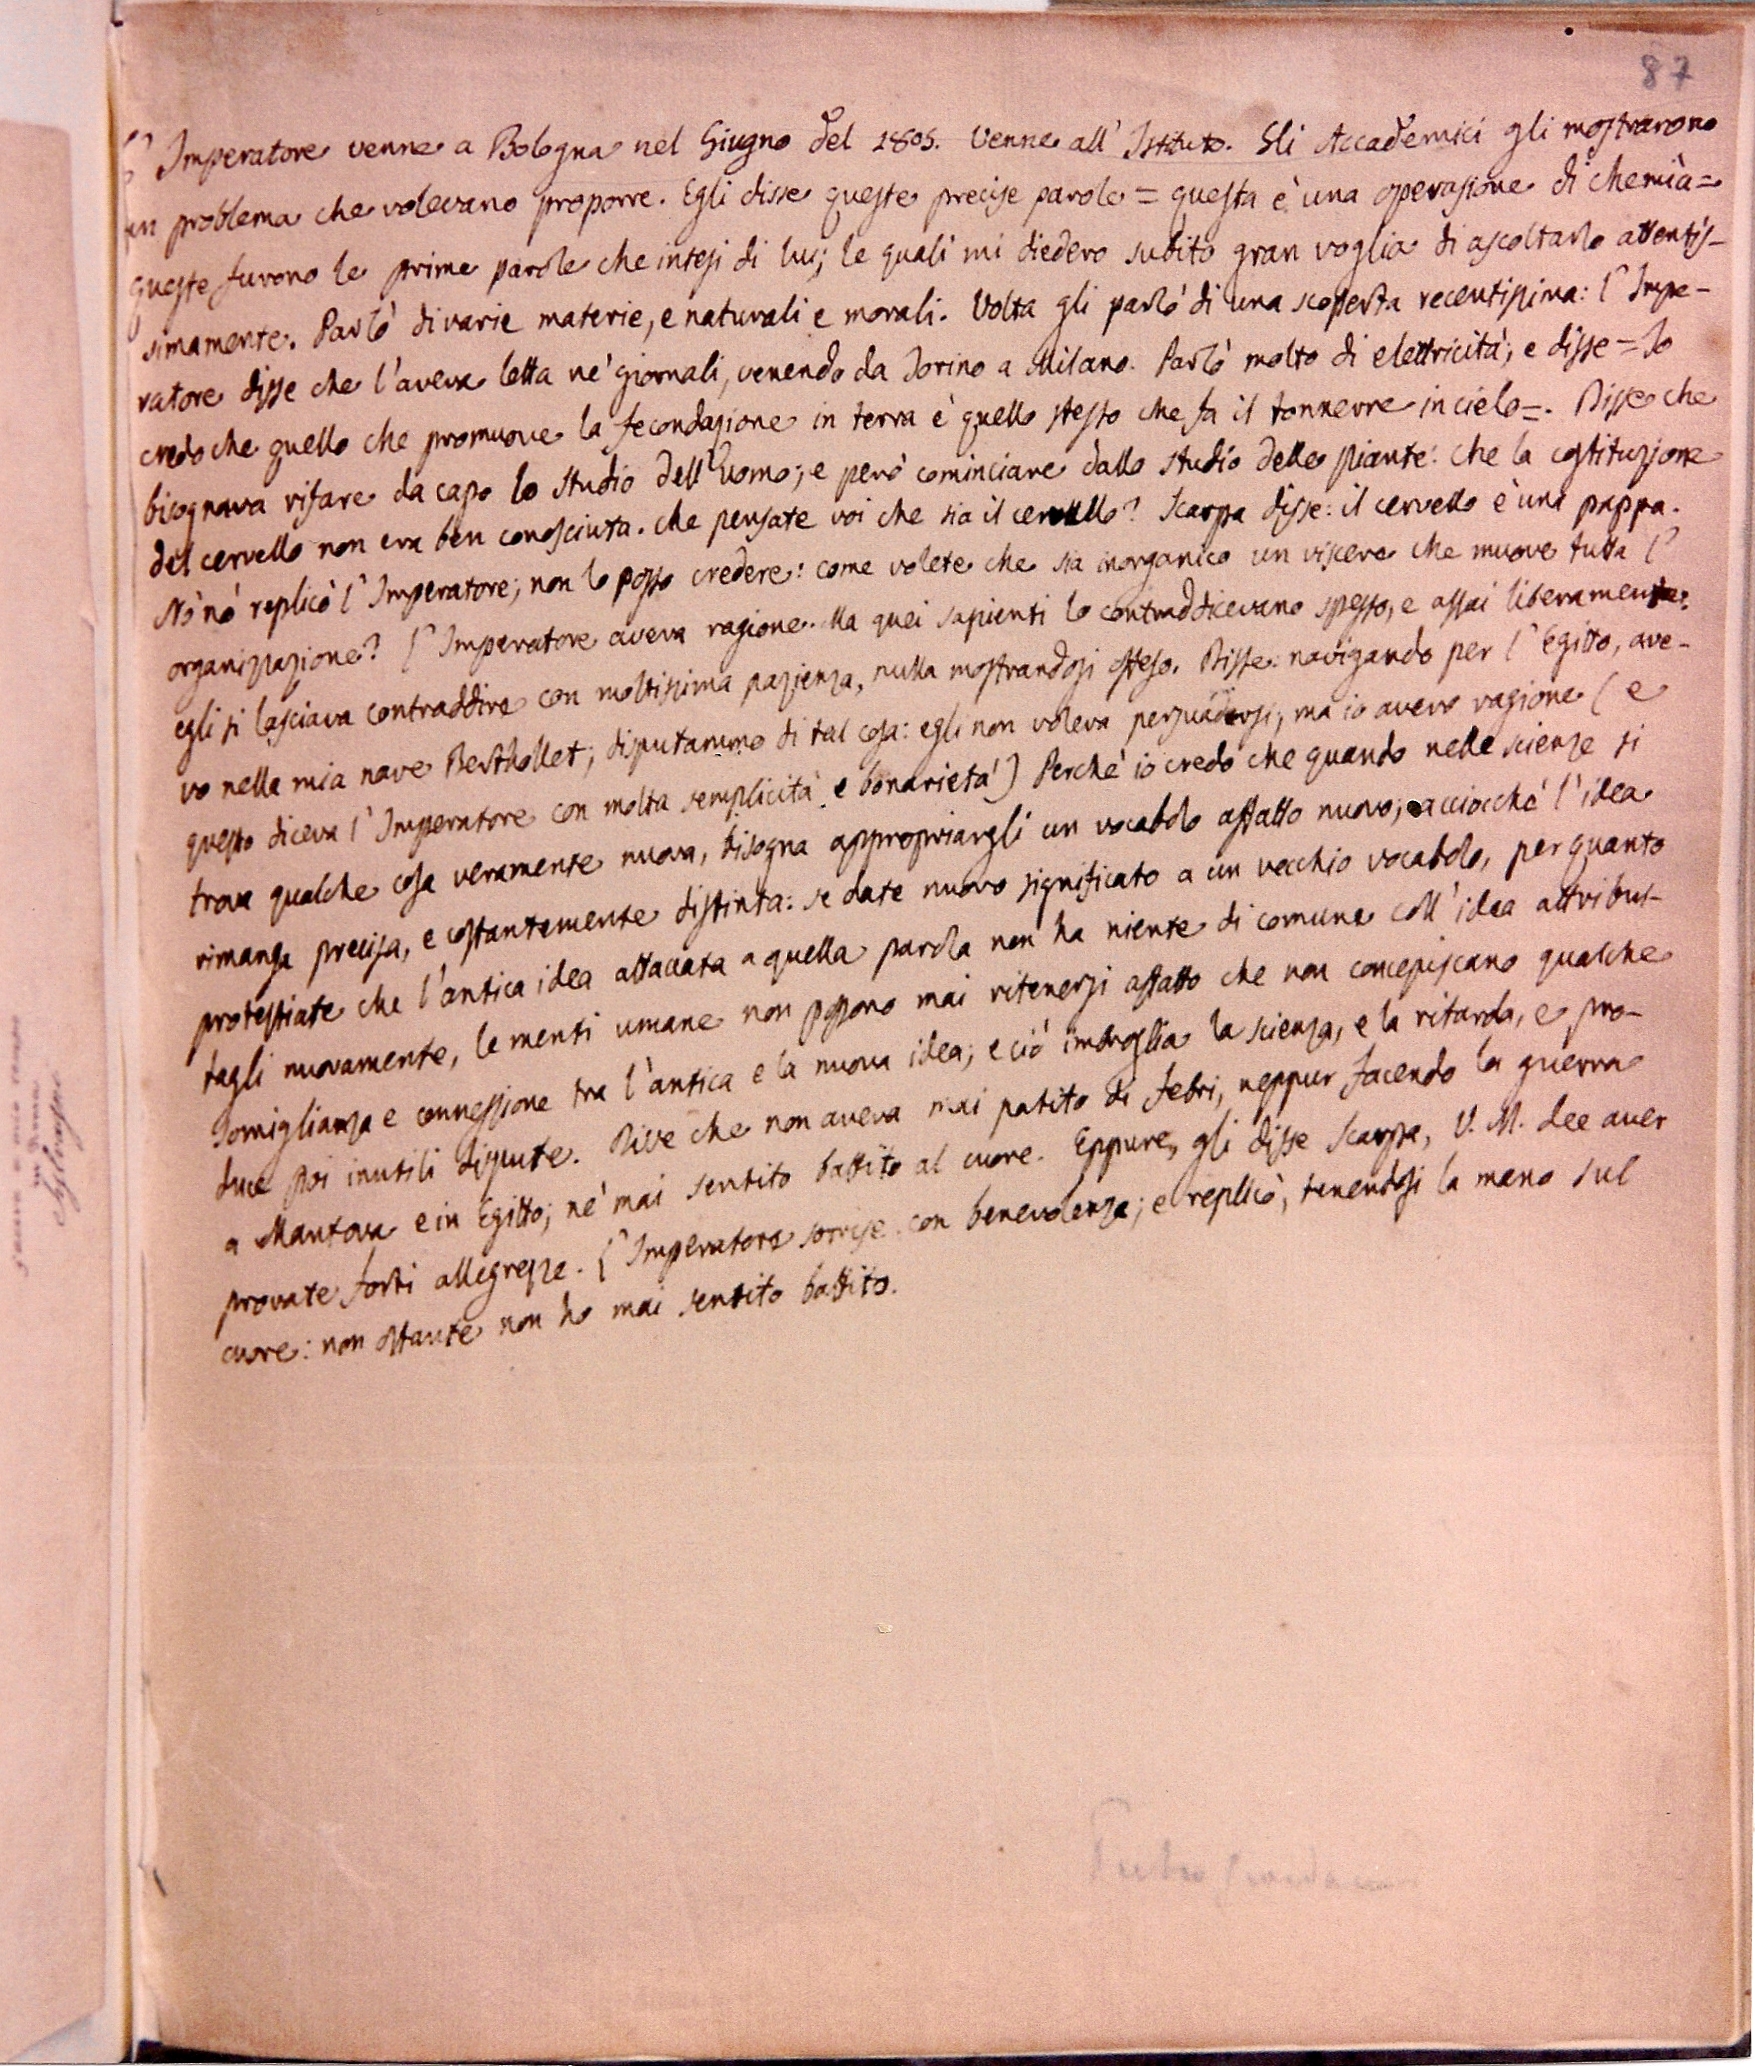 87
l'Imperatore venne a Bologna nel Giugno del 1805. Venne all'Istituto. Gli Accademici gli mostrarono
un problema che volevano proporre. Egli disse queste precise parole = questa è una operazione di chemìa =
queste furono le prime parole che intesi di lui; le quali mi diedero subito gran voglia di ascoltarlo attentis-
simamente. Parlò di varie materie, e naturali e morali. Volta gli parlò di una scoperta recentissima: l'Impe-
ratore disse che l'aveva letta ne' giornali, venendo da Torino a Milano. Parlò molto di elettricità; e disse = Io
credo che quello che promuove la fecondazione in terra è quello stesso che fa il tonnerre in cielo =. Disse che
bisognava rifare da capo lo studio dell'Uomo; e però cominciare dallo studio delle piante: che la costituzione
del cervello non era ben conosciuta. che pensate voi che sia il cervello? Scarpa disse: il cervello è una pappa.
Nò nò replicò l'Imperatore; non lo posso credere: come volete che sia inorganico un viscere che muove tutta l'
organizzazione? l'Imperatore aveva ragione. Ma quei sapienti lo contraddicevano spesso, e assai liberamente:
egli si lasciava contraddire con moltissima pazienza, nulla mostrandosi offeso. Disse: navigando per l'Egitto, ave-
vo nella mia nave Berthollet; disputammo di tal cosa: egli non voleva persuadersi, ma io avevo ragione (e
questo diceva l'Imperatore con molta semplicità e bonarietà) Perchè io credo che quando nelle scienze si
trova qualche cosa veramente nuova, bisogna appropriargli un vocabolo affatto nuovo; acciocchè l'idea
rimanga precisa, e costantemente distinta: se date nuovo significato a un vecchio vocabolo, per quanto
protestiate che l'antica idea attaccata a quella parola non ha niente di comune coll'idea attribui-
tagli nuovamente, le menti umane non possono mai ritenersi affatto che non concepiscano qualche
somiglianza e connessione tra l'antica e la nuova idea; e ciò imbroglia la scienza, e la ritarda, e pro-
duce poi inutili dispute. Disse che non aveva mai patito di febri, neppur facendo la guerra
a Mantova e in Egitto; nè mai sentito battito al cuore. Eppure, gli disse Scarpa, V. M. dee aver
provate forti allegrezze. l'Imperatore sorrise con benevolenza; e replicò, tenendosi la mano sul
cuore: non ostante non ho mai sentito battito.